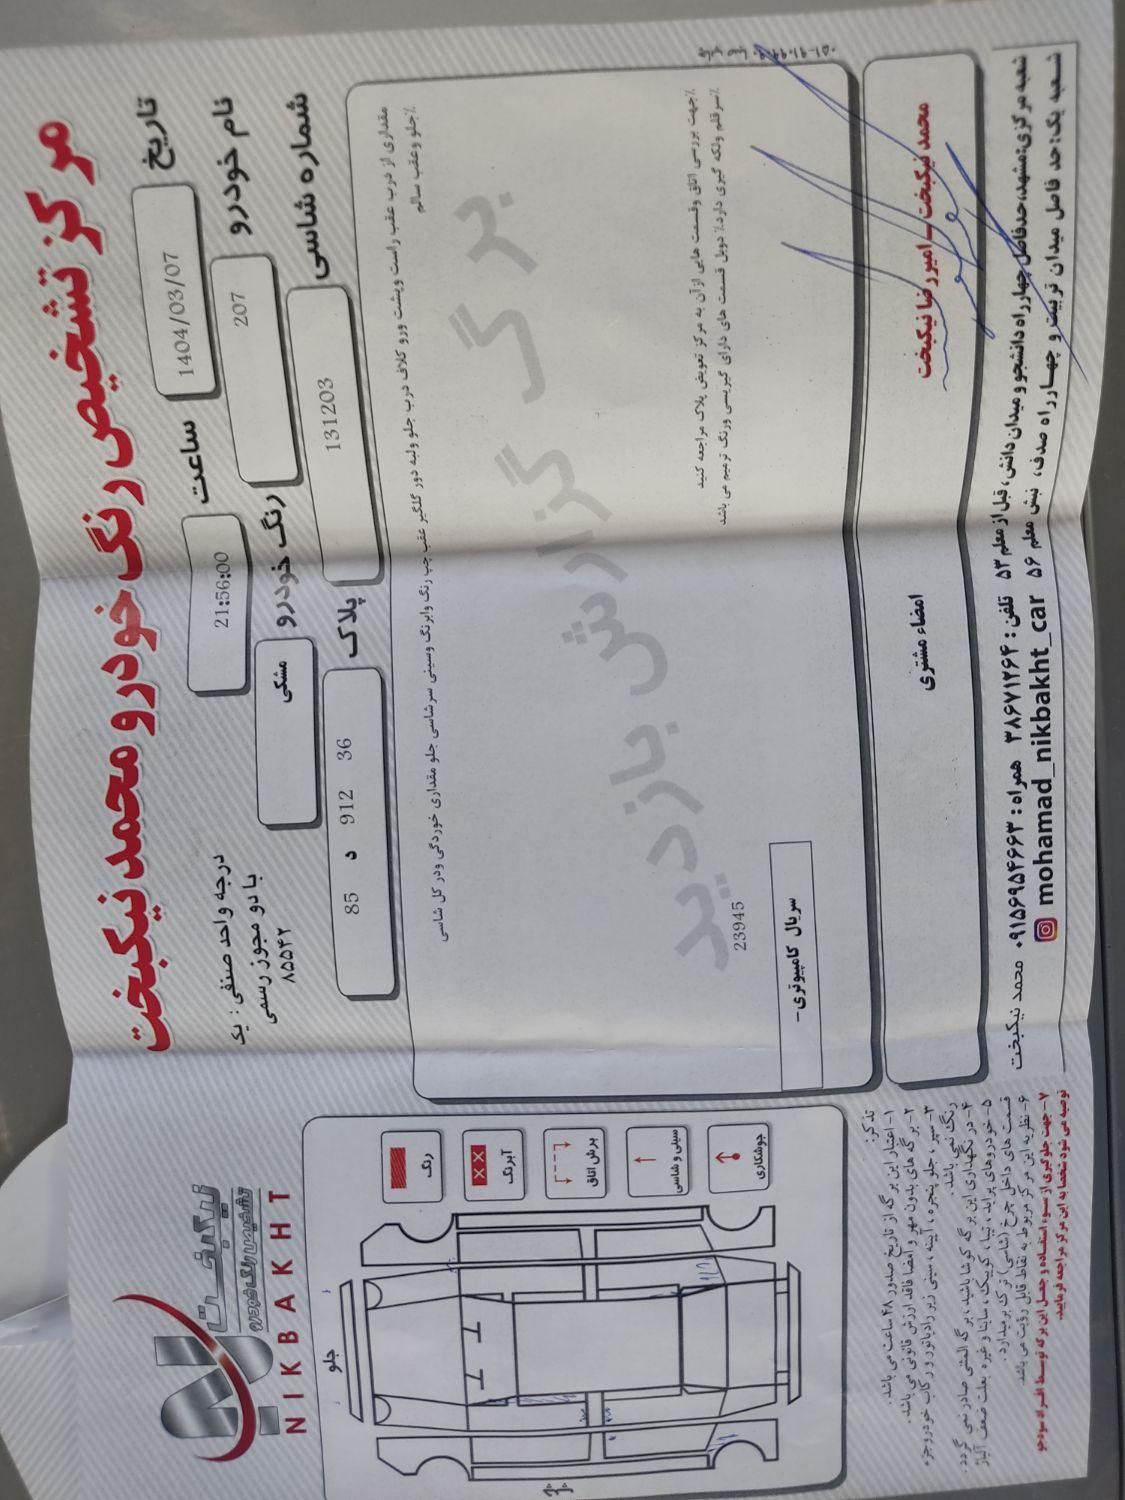 مرکز تشخیص رنگ خودرو محمد نیکبخت
تاریخ
1404/03/07
ساعت
21:56:00
درجه واحد صنفی : یک
با دو مجوز رسمی
۸۵۵۴۲
نام خودرو
207
رنگ خودرو
مشکی
شماره شاسی
131203
پلاک
85 د 912 36
مقداری از درب عقب راست وپشت ورو کلاف درب جلو ولبه دور گلگیر عقب چپ رنگ وابرنگ وسینی سرشاسی جلو مقداری خوردگی ودر کل شاسی
٪جلو وعقب سالم
برگ گزارش بازدید
٪جهت بررسی اتاق وقسمت هایی ازآن به مرکز تعویض پلاک مراجعه کنید
٪سرقلم ولکه گیری دارد.٪ دوبل قسمت های دارای گیریسی ورنگ ترمیم می باشد
23945
سریال کامپیوتری-
محمد نیکبخت - امیررضا نیکبخت
امضاء مشتری
شعبه مرکزی:مشهد،حدفاصل چهارراه دانشجو و میدان دانش، قبل از معلم ۵۳ تلفن : ۳۸۶۷۱۲۶۴ همراه : ۰۹۱۵۶۹۵۴۶۶۳ محمد نیکبخت
شعبه یک:حد فاصل میدان تربیت و چهارراه صدف، نبش معلم ۵۶ mohamad_nikbakht_car
نیکبخت
تشخیص رنگ خودرو
NIKBAKHT
جلو
رنگ
آبرنگ
برش اتاق
سینی و شاسی
جوشکاری
تذکر:
۱- اعتبار این برگه از تاریخ صدور ۴۸ ساعت می باشد.
۲- برگه های بدون مهر و امضا فاقد ارزش قانونی می باشد.
۳- سپر، جلو پنجره، آینه، سینی زیر رادیاتور و رکاب خودرو جزء
رنگ نمی باشد.
۴- در نگهداری این برگه کوشا باشید، برگه المثنی صادر نمی گردد.
۵- خودروهای پراید، تیبا، کوییک، ساینا و غیره بعلت ضعف آلیاژ
قسمت های داخل چرخ (شاسی) ترک برمیدارد.
۶- نظریه این مرکز مربوط به نقاط قابل رؤیت می باشد.
۷- جهت جلوگیری از سوء استفاده و جعل این برگه توسط افراد سودجو
توصیه می شود شخصا به این مرکز مراجعه فرمایید.